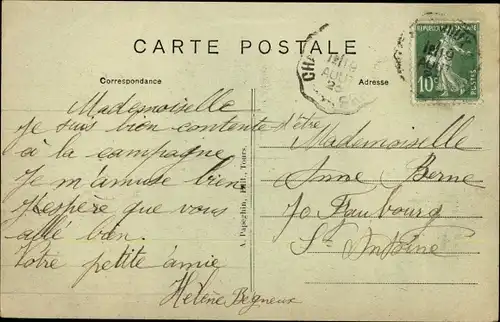 CARTE POSTALE
Correspondance
Adresse
Mademoiselle
Je suis bien contente d'être
à la campagne
Je m'amuse bien
J'espère que vous
alle bien.
Votre petite amie
Hélène Begneux
A. Papeghin, Edit., Tours.
Mademoiselle
Anne Berne
70 Faubourg
St Antoine
CHA
12/19
AOUT
25
REPUBLIQUE FRANÇAISE
10
POSTES